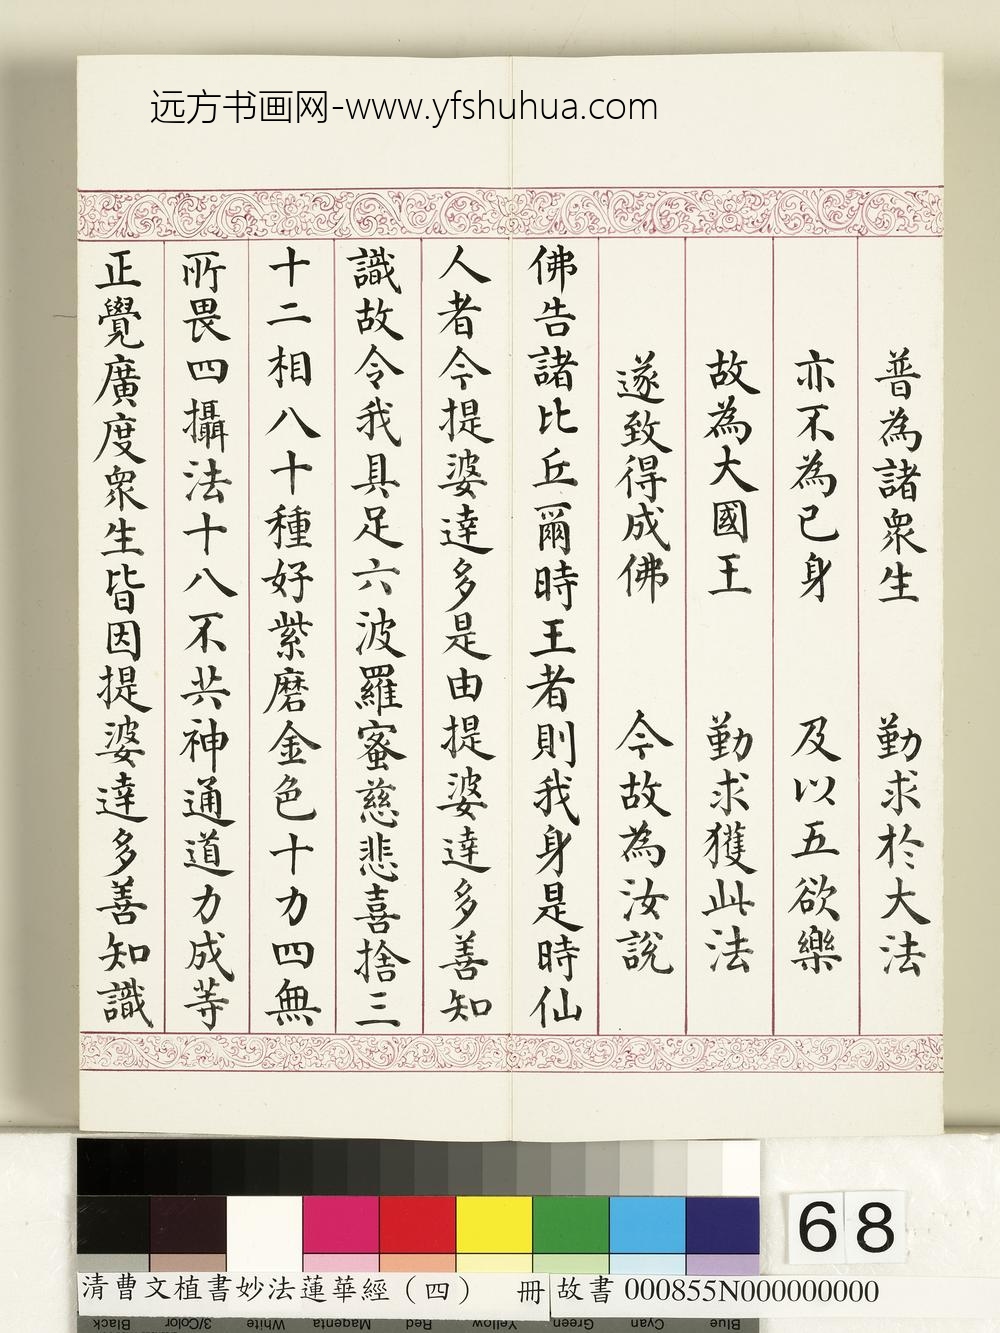 远方书画网-www.yfshuhua.com
普為諸衆生　勤求於大法
亦不為己身　及以五欲樂
故為大國王　勤求獲此法
遂致得成佛　今故為汝說
佛告諸比丘爾時王者則我身是時仙
人者今提婆達多是由提婆達多善知
識故令我具足六波羅蜜慈悲喜捨三
十二相八十種好紫磨金色十力四無
所畏四攝法十八不共神通道力成等
正覺廣度衆生皆因提婆達多善知識
68
清曹文植書妙法蓮華經（四）　冊
故書 000855N000000000
Black
3/Color
White
Magenta
Red
Yellow
Green
Cyan
Blue